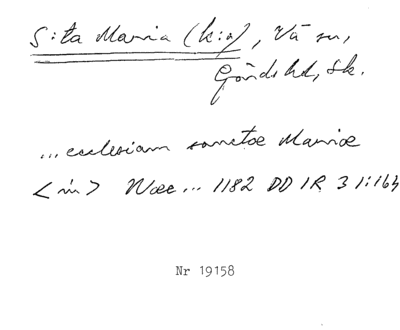 S:ta Maria (k:a), Vä sn,
Gärds hd, Sk.
...ecclesiam sanctæ Mariæ
<in> Wæ... 1182 DD 1R 3 1:164
Nr 19158